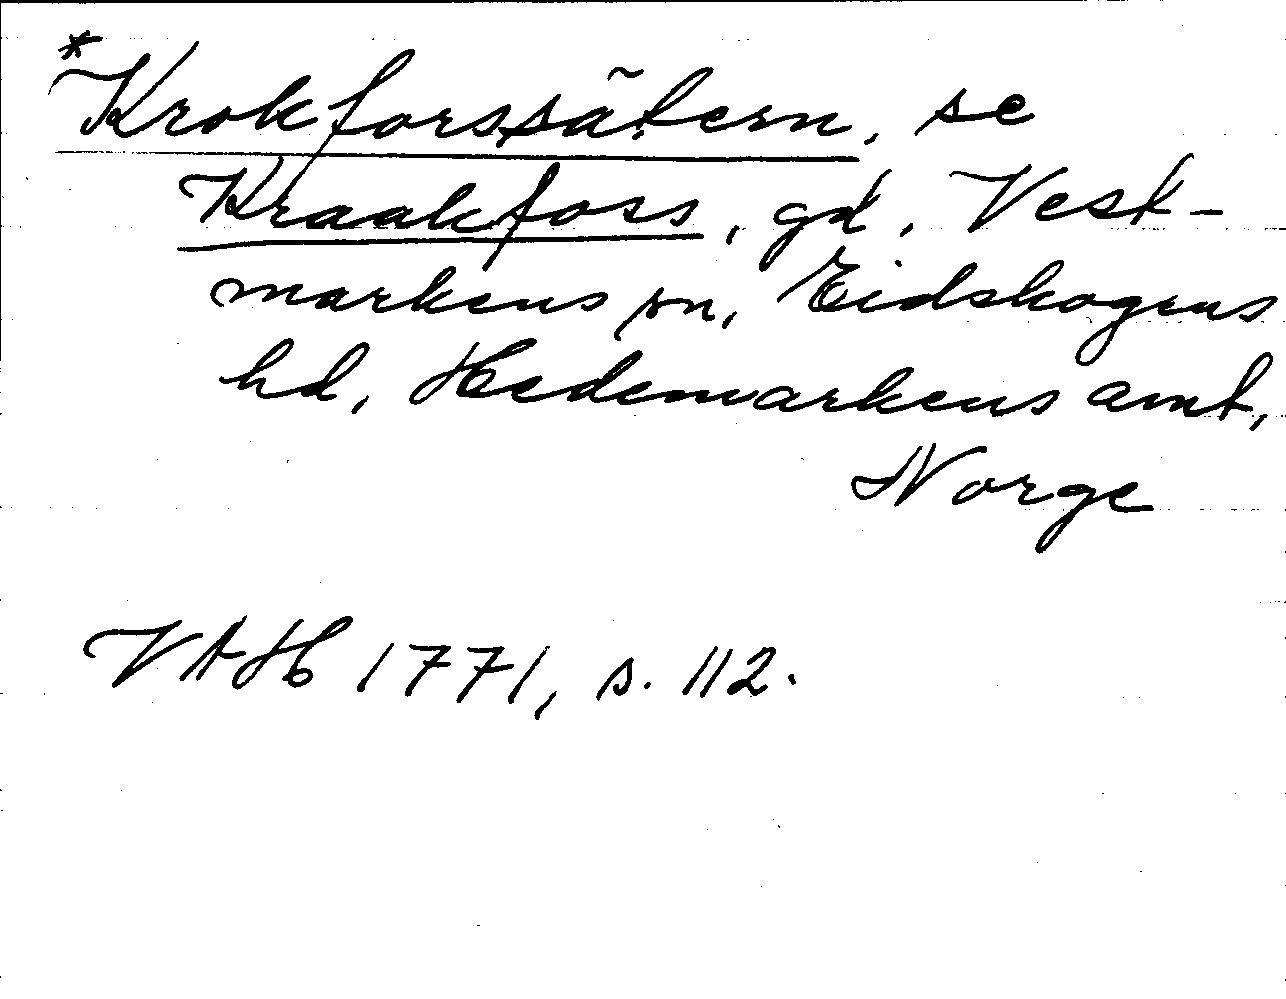 *Krokforssätern, se
Kraakfoss, gd, Vest-
markens sn, Eidskogens
hd, Hedemarkens amt,
Norge
VAH 1771, s. 112.